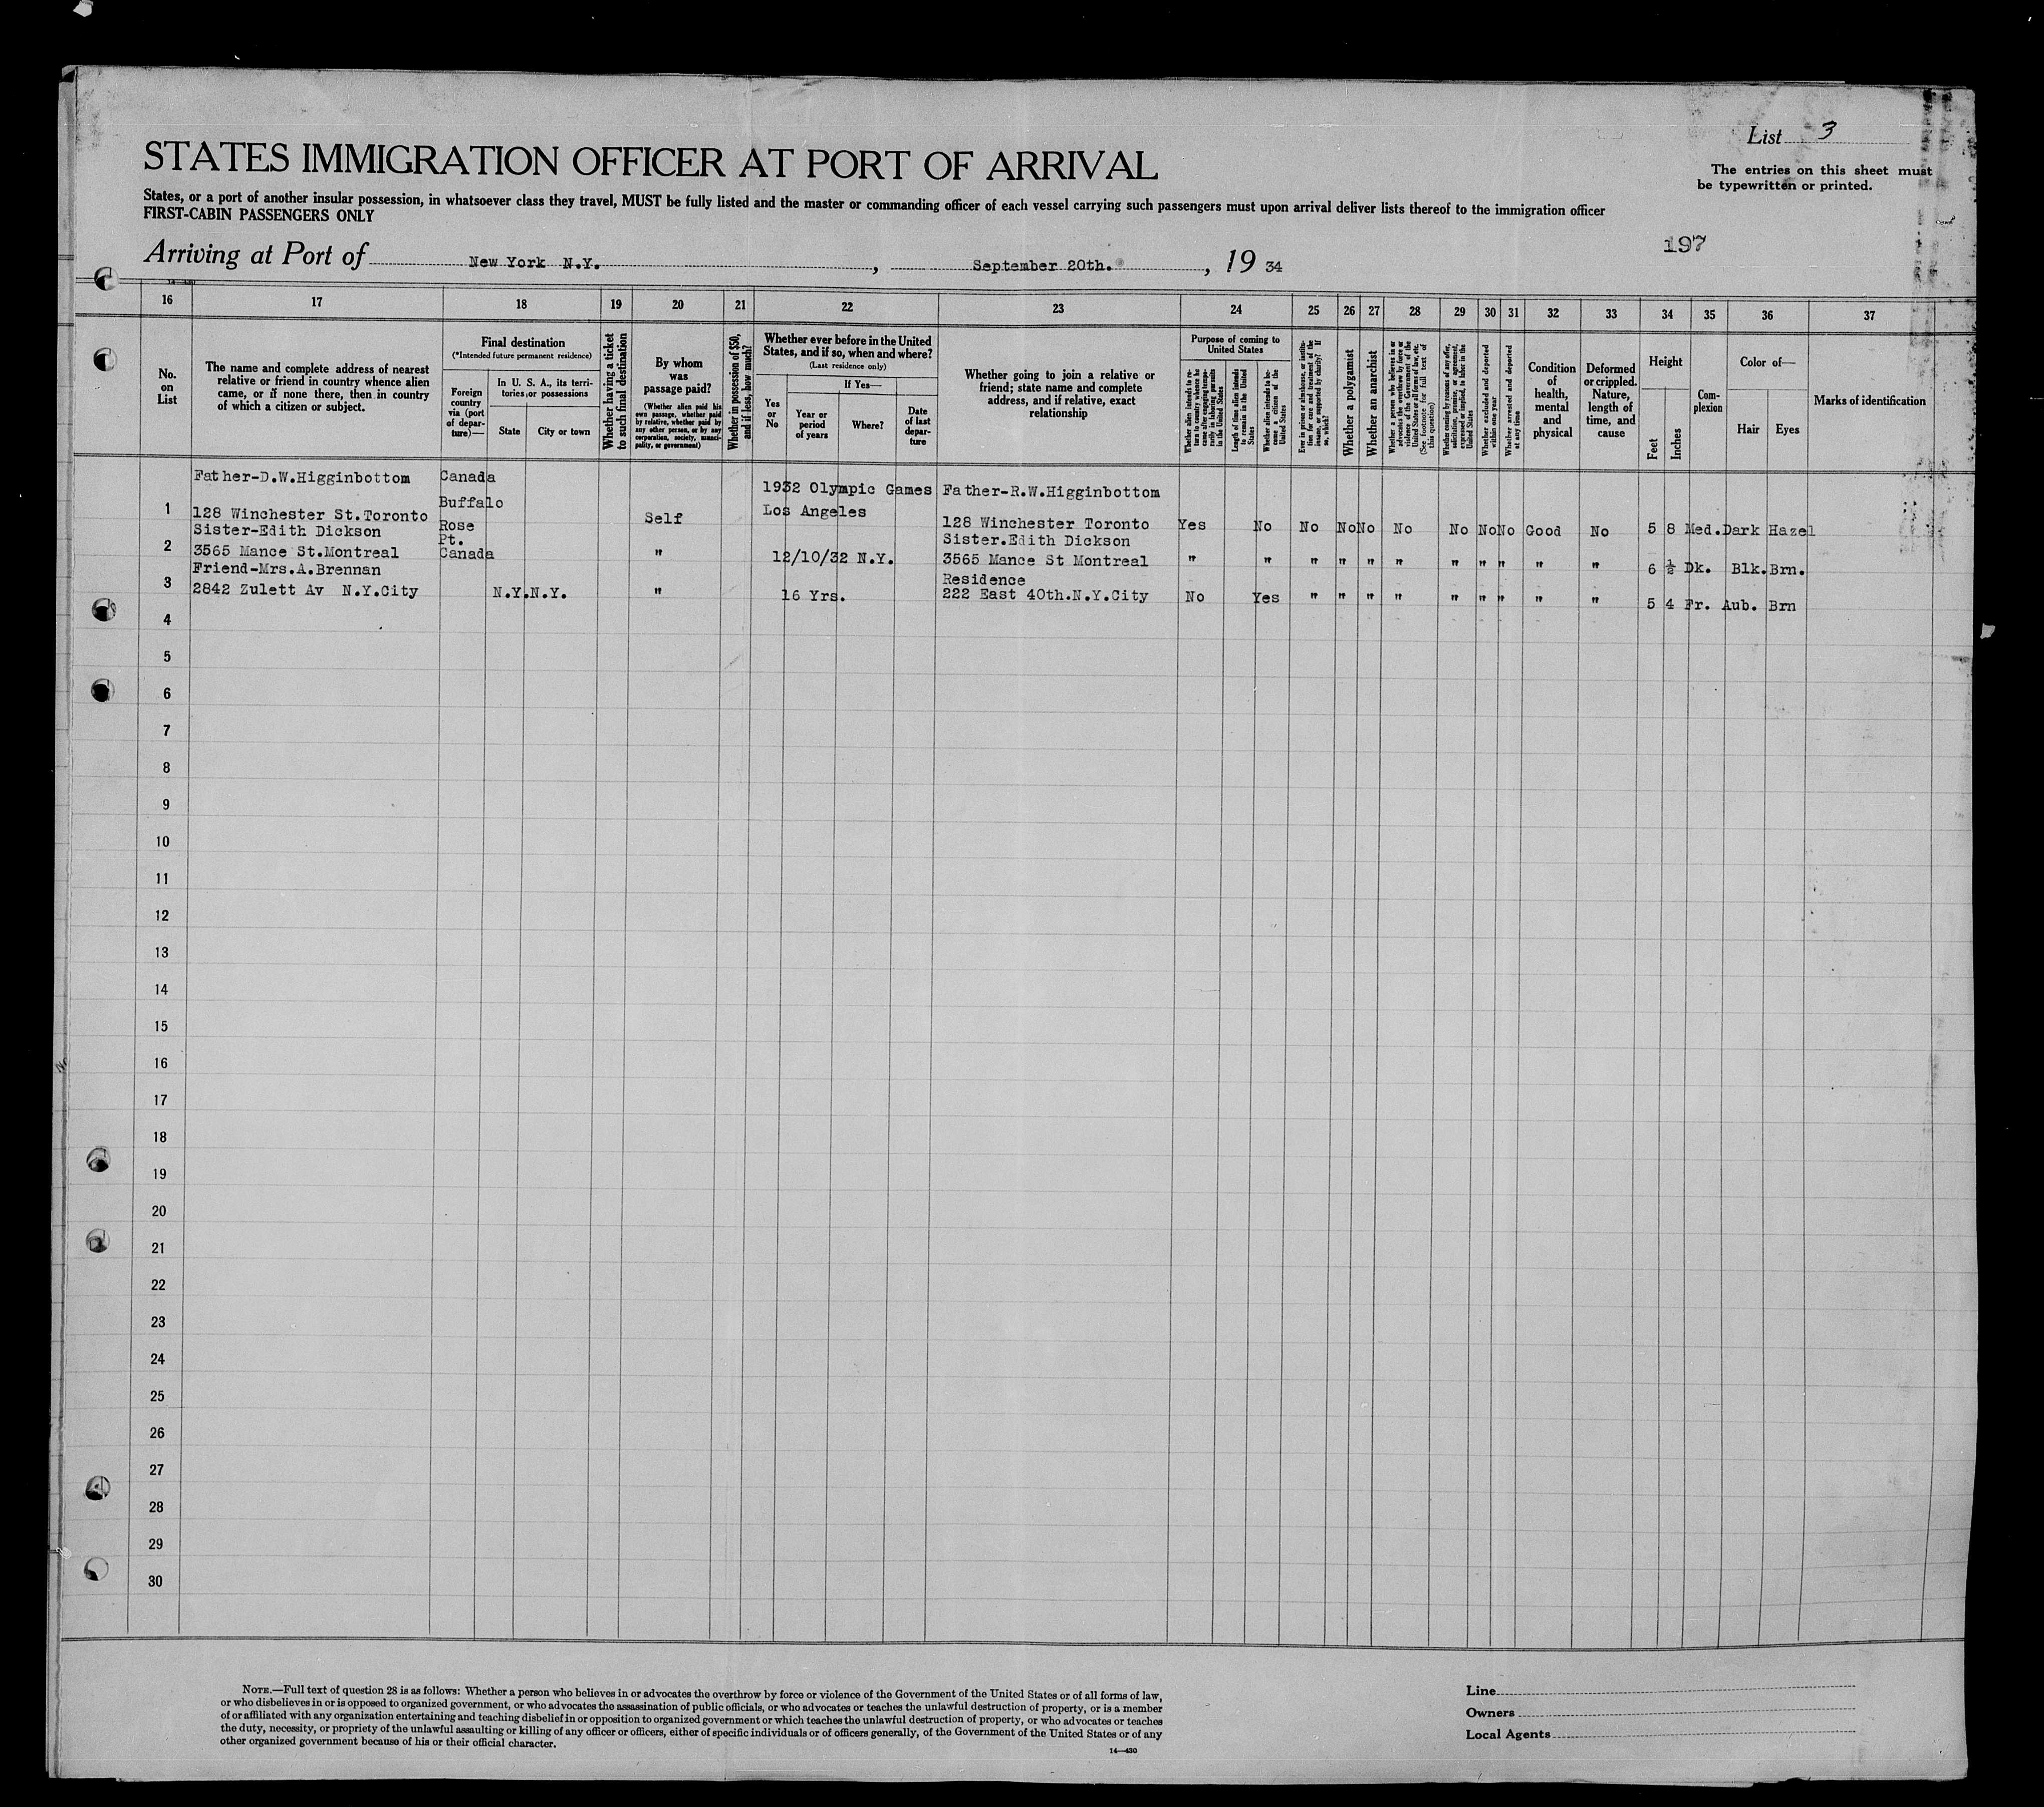 List 3
The entries on this sheet must
be typewritten or printed.
STATES IMMIGRATION OFFICER AT PORT OF ARRIVAL
States, or a port of another insular possession, in whatsoever class they travel, MUST be fully listed and the master or commanding officer of each vessel carrying such passengers must upon arrival deliver lists thereof to the immigration officer
FIRST-CABIN PASSENGERS ONLY
197
Arriving at Port of New York N.Y. , September 20th. , 19 34
14—430
16 17 18 19 20 21 22 23 24 25 26 27 28 29 30 31 32 33 34 35 36 37
No.
on
List
The name and complete address of nearest
relative or friend in country whence alien
came, or if none there, then in country
of which a citizen or subject.
Final destination
(*Intended future permanent residence)
Foreign
country
via (port
of depar-
ture)—
In U. S. A., its terri-
tories, or possessions
State
City or town
Whether having a ticket
to such final destination
By whom
was
passage paid?
(Whether alien paid his
own passage, whether paid
by relative, whether paid by
any other person, or by any
corporation, society, munici-
pality, or government)
Whether in possession of $50,
and if less, how much?
Whether ever before in the United
States, and if so, when and where?
(Last residence only)
Yes
or
No
If Yes—
Year or
period
of years
Where?
Date
of last
depar-
ture
Whether going to join a relative or
friend; state name and complete
address, and if relative, exact
relationship
Purpose of coming to
United States
Whether alien intends to re-
turn to country whence he
came after engaging tempo-
rarily in laboring pursuits
in the United States
Length of time alien intends
to remain in the United
States
Whether alien intends to be-
come a citizen of the
United States
Ever in prison or almshouse, or institu-
tion for care and treatment of the
insane, or supported by charity? If
so, which?
Whether a polygamist
Whether an anarchist
Whether a person who believes in or
advocates the overthrow by force or
violence of the Government of the
United States or all forms of law, etc.
(See footnote for full text of
this question)
Whether coming by reasons of any offer,
solicitation, promise, or agreement,
expressed or implied, to labor in the
United States
Whether excluded and deported
within one year
Whether arrested and deported
at any time
Condition
of
health,
mental
and
physical
Deformed
or crippled.
Nature,
length of
time, and
cause
Height
Feet
Inches
Com-
plexion
Color of—
Hair
Eyes
Marks of identification
Father-D.W.Higginbottom Canada
1932 Olympic Games Father-R.W.Higginbottom
Buffalo
Los Angeles
1 128 Winchester St.Toronto Self 128 Winchester Toronto Yes No No No No No No No No Good No 5 8 Med. Dark Hazel
Sister-Edith Dickson Rose Sister.Edith Dickson
Pt.
2 3565 Mance St.Montreal Canada " 12/10/32 N.Y. 3565 Mance St Montreal " " " " " " " " " " " 6 ½ Dk. Blk. Brn.
Friend-Mrs.A.Brennan Residence
3 2842 Zulett Av N.Y.City N.Y. N.Y. " 16 Yrs. 222 East 40th.N.Y.City No Yes " " " " " " " " " 5 4 Fr. Aub. Brn
4
5
6
7
8
9
10
11
12
13
14
15
16
17
18
19
20
21
22
23
24
25
26
27
28
29
30
NOTE.—Full text of question 28 is as follows: Whether a person who believes in or advocates the overthrow by force or violence of the Government of the United States or of all forms of law,
or who disbelieves in or is opposed to organized government, or who advocates the assassination of public officials, or who advocates or teaches the unlawful destruction of property, or is a member
of or affiliated with any organization entertaining and teaching disbelief in or opposition to organized government or which teaches the unlawful destruction of property, or who advocates or teaches
the duty, necessity, or propriety of the unlawful assaulting or killing of any officer or officers, either of specific individuals or of officers generally, of the Government of the United States or of any
other organized government because of his or their official character.
14—430
Line
Owners
Local Agents